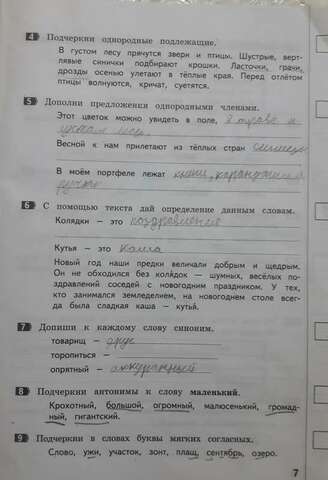 4 Подчеркни однородные подлежащие.
В густом лесу прячутся звери и птицы. Шустрые, верт-
лявые синички подбирают крошки. Ласточки, грачи,
дрозды осенью улетают в тёплые края. Перед отлётом
птицы волнуются, кричат, суетятся.
5 Дополни предложения однородными членами.
Этот цветок можно увидеть в поле, в траве и
Весной к нам прилетают из тёплых стран
В моём портфеле лежат книги, карандаши и
ручка
6 С помощью текста дай определение данным словам.
Колядки — это поздравление
Кутья — это каша
Новый год наши предки величали добрым и щедрым.
Он не обходился без колядок — шумных, весёлых по-
здравлений соседей с новогодним праздником. У тех,
кто занимался земледелием, на новогоднем столе всег-
да была сладкая каша — кутья.
7 Допиши к каждому слову синоним.
товарищ — друг
торопиться —
опрятный — аккуратный
8 Подчеркни антонимы к слову маленький.
Крохотный, большой, огромный, малюсенький, громад-
ный, гигантский.
9 Подчеркни в словах буквы мягких согласных.
Слово, ужи, участок, зонт, плащ, сентябрь, озеро.
7